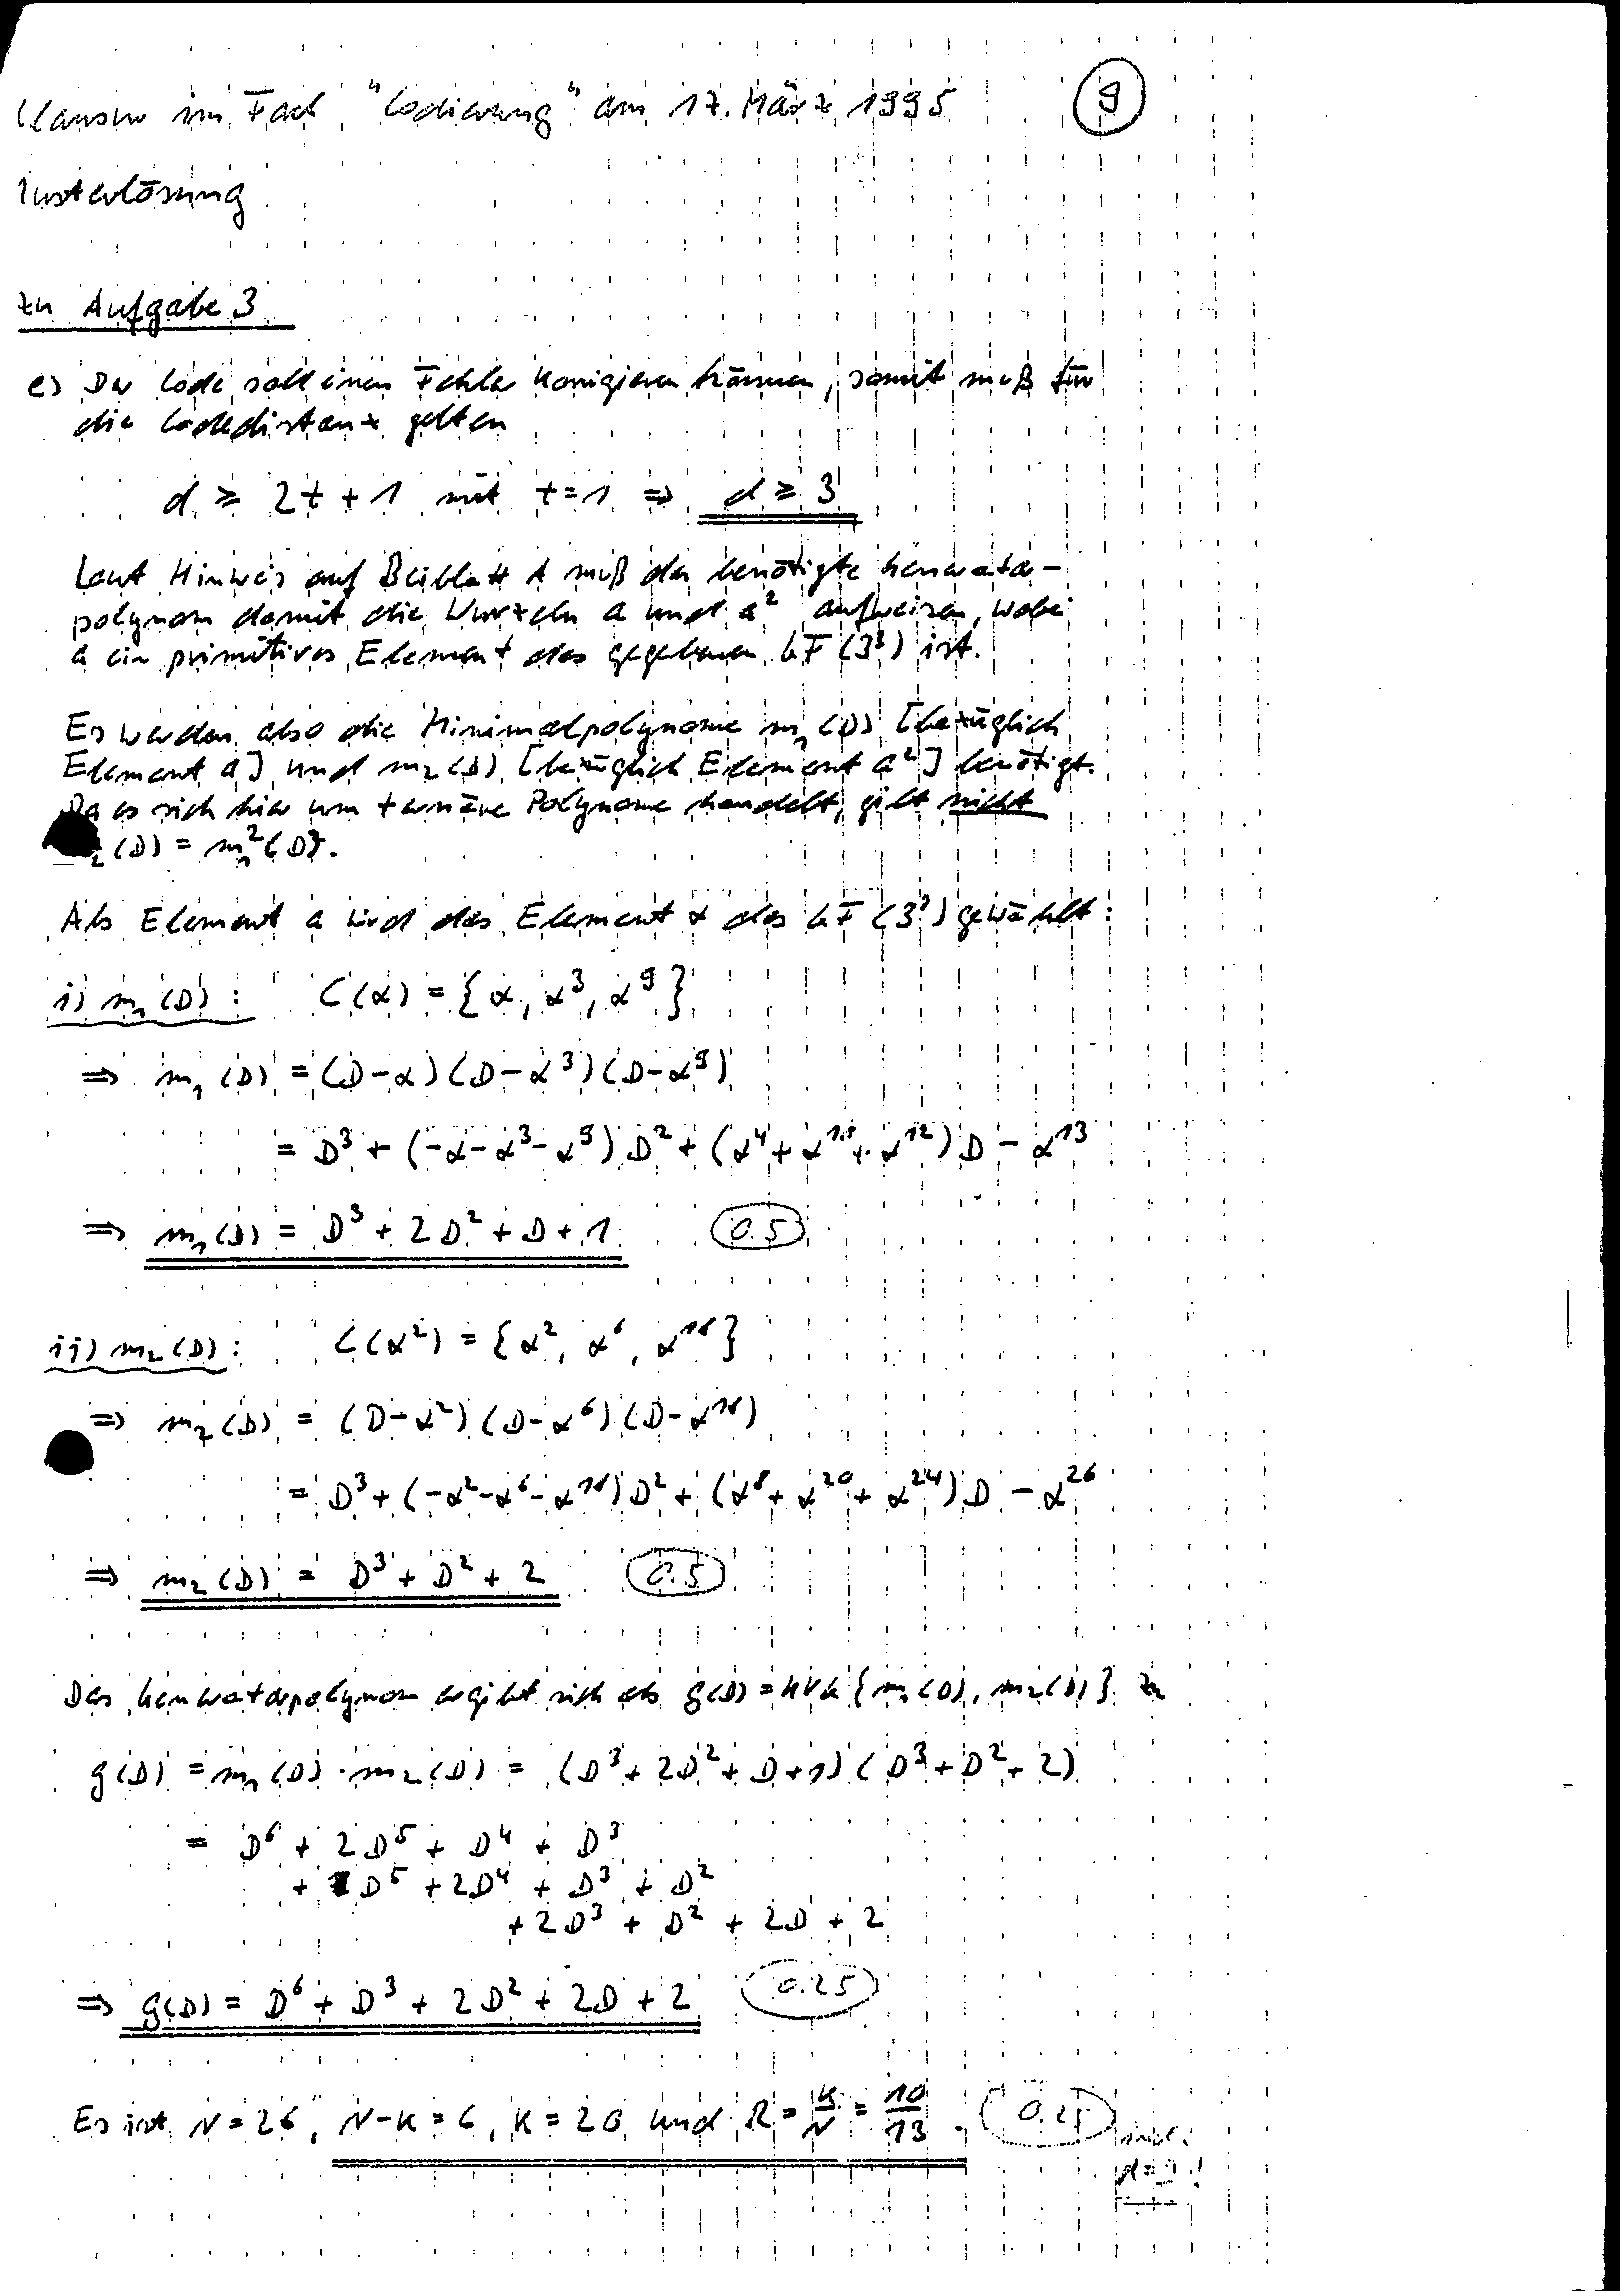 Klausur im Fach "Codierung" am 17. März 1995 9
Musterlösung
zu Aufgabe 3
e) Der Code soll einen Fehler korrigieren können, somit muß für
die Codedistanz gelten
d ≥ 2t + 1 mit t=1 ⇒ d ≥ 3
Laut Hinweis auf Beiblatt A muß das benötigte Generator-
polynom damit die Wurzeln a und a² aufweisen, wobei
a ein primitives Element des gegebenen GF(3³) ist.
Es werden also die Minimalpolynome m₁(D) [bezüglich
Element a] und m₂(D) [bezüglich Element a²] benötigt.
Da es sich hier um ternäre Polynome handelt, gilt nicht
m₂(D) = m₁²(D).
Als Element a wird das Element α des GF(3³) gewählt:
i) m₁(D): C(α) = {α, α³, α⁹}
⇒ m₁(D) = (D-α)(D-α³)(D-α⁹)
= D³ + (-α-α³-α⁹)D² + (α⁴+α¹⁰+α¹²)D - α¹³
⇒ m₁(D) = D³ + 2D² + D + 1 0.5
ii) m₂(D): C(α²) = {α², α⁶, α¹⁸}
⇒ m₂(D) = (D-α²)(D-α⁶)(D-α¹⁸)
= D³ + (-α²-α⁶-α¹⁸)D² + (α⁸+α²⁰+α²⁴)D - α²⁶
⇒ m₂(D) = D³ + D² + 2 0.5
Das Generatorpolynom ergibt sich als g(D) = KGV {m₁(D), m₂(D)} zu
g(D) = m₁(D) · m₂(D) = (D³+2D²+D+1)(D³+D²+2)
= D⁶ + 2D⁵ + D⁴ + D³
+ D⁵ + 2D⁴ + D³ + D²
+ 2D³ + D² + 2D + 2
⇒ g(D) = D⁶ + D³ + 2D² + 2D + 2 0.25
Es ist N=26, N-K=6, K=20 und R = K/N = 10/13. 0.25